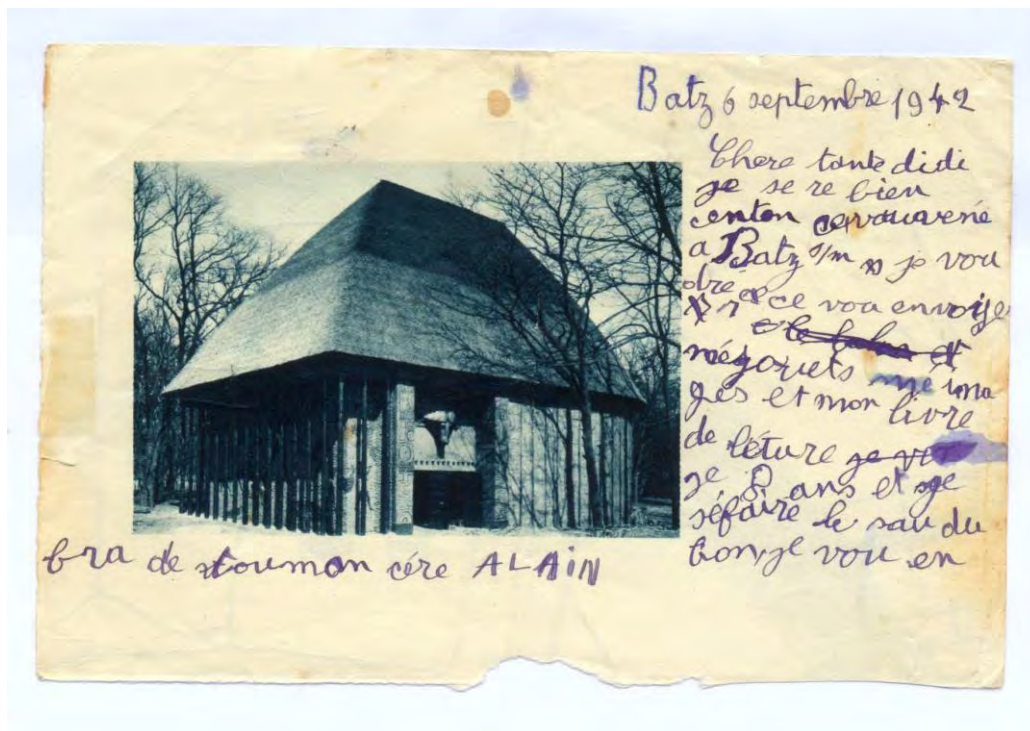 Batz 6 septembre 1942
Chere tante didi
je se re bien
conten cervouvené
a Batz s/m je vou
dré ce vou envoije
mégouets me ima
ges et mon livre
de léture je vou
je 8 ans et je
séfaire le sau du
bon, je vou en
bra de toumon cére ALAIN